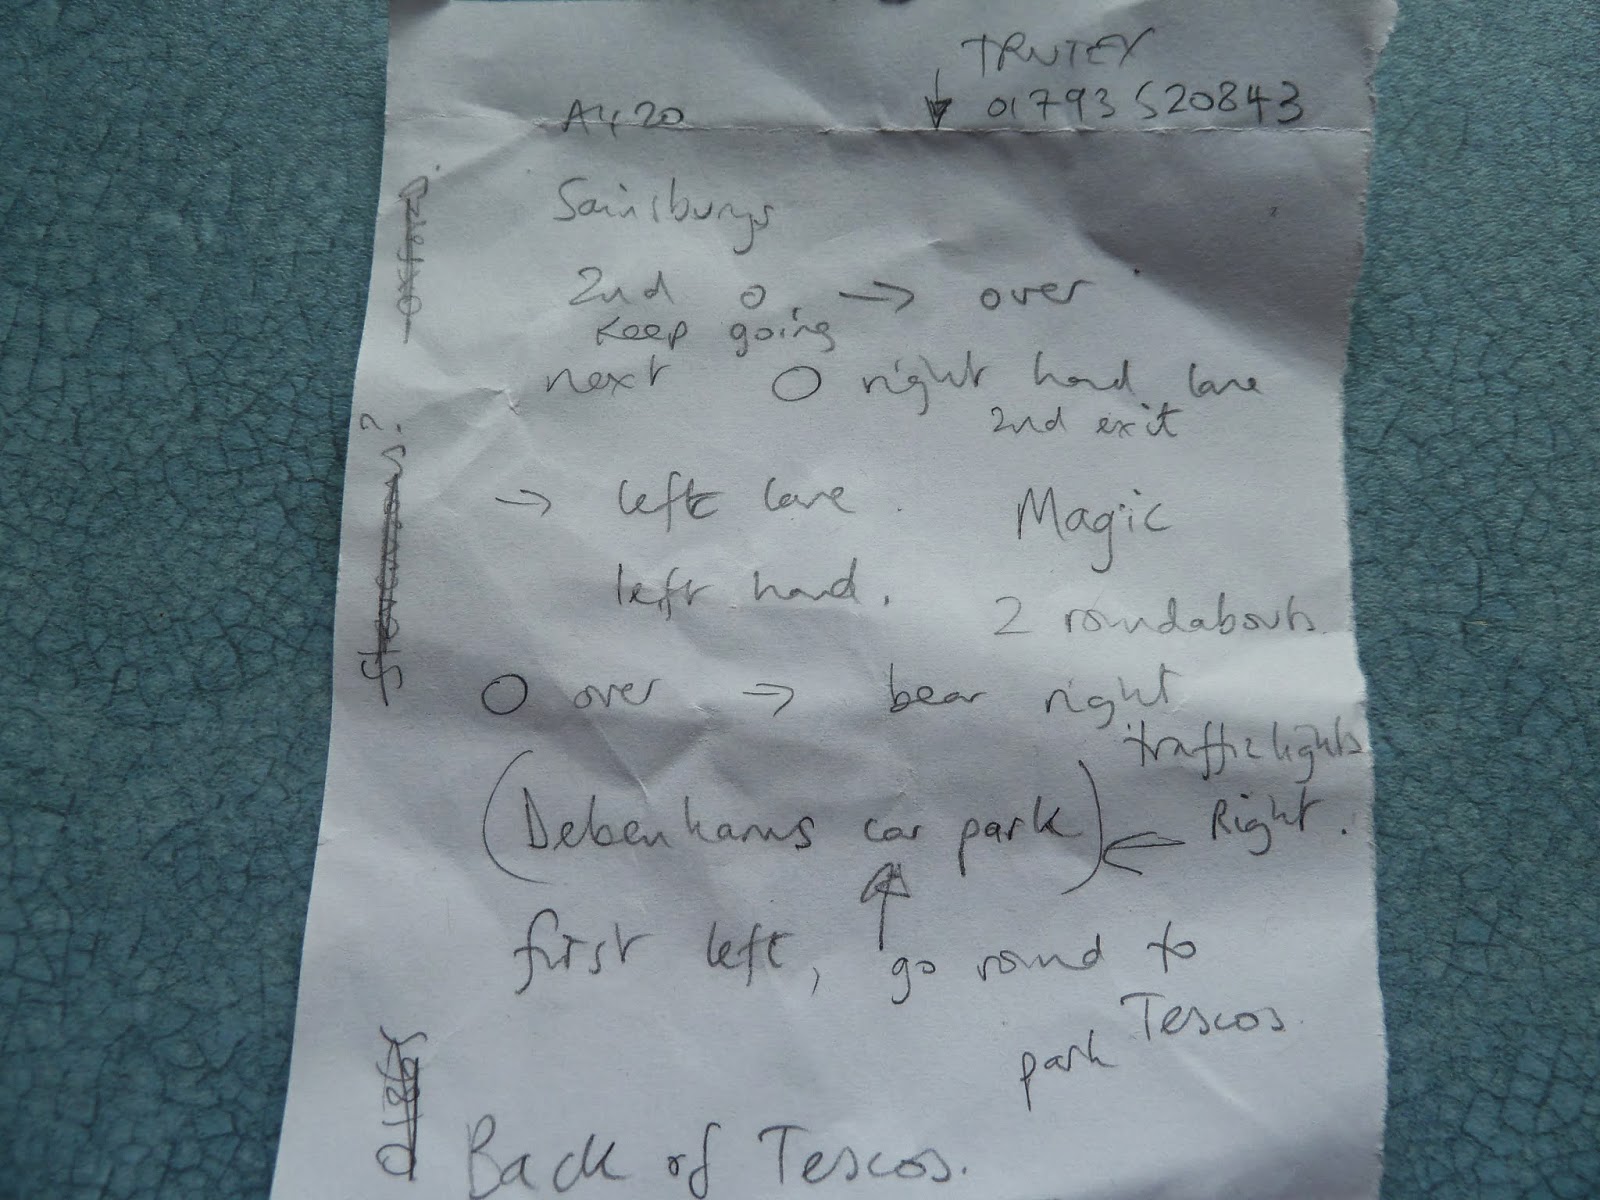 TRUTEX
A420 ↓ 01793 520843
Sainsburys
2nd O. → over
keep going
next O right hand lane
2nd exit
→ left lane. Magic
left hand. 2 roundabouts
O over → bear right
traffic lights
(Debenhams car park) ← Right.
first left, ↑ go round to
Tescos.
park
Back of Tescos.
oxford.
Stevensons?